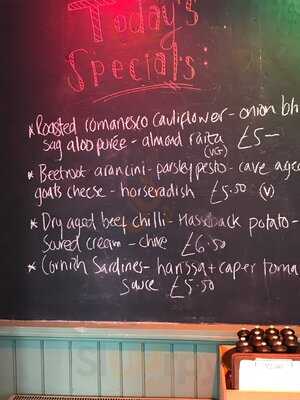 Today's
Specials:
* Roasted romanesco cauliflower - onion bh
sag aloo purée - almond raita £5-
(VG)
* Beetroot arancini - parsley pesto - cave aged
goats cheese - horseradish £5.50 (V)
* Dry aged beef chilli - Hasselback potato -
Soured cream - chive £6.50
* Cornish Sardines - harissa + caper toma
sauce £5.50